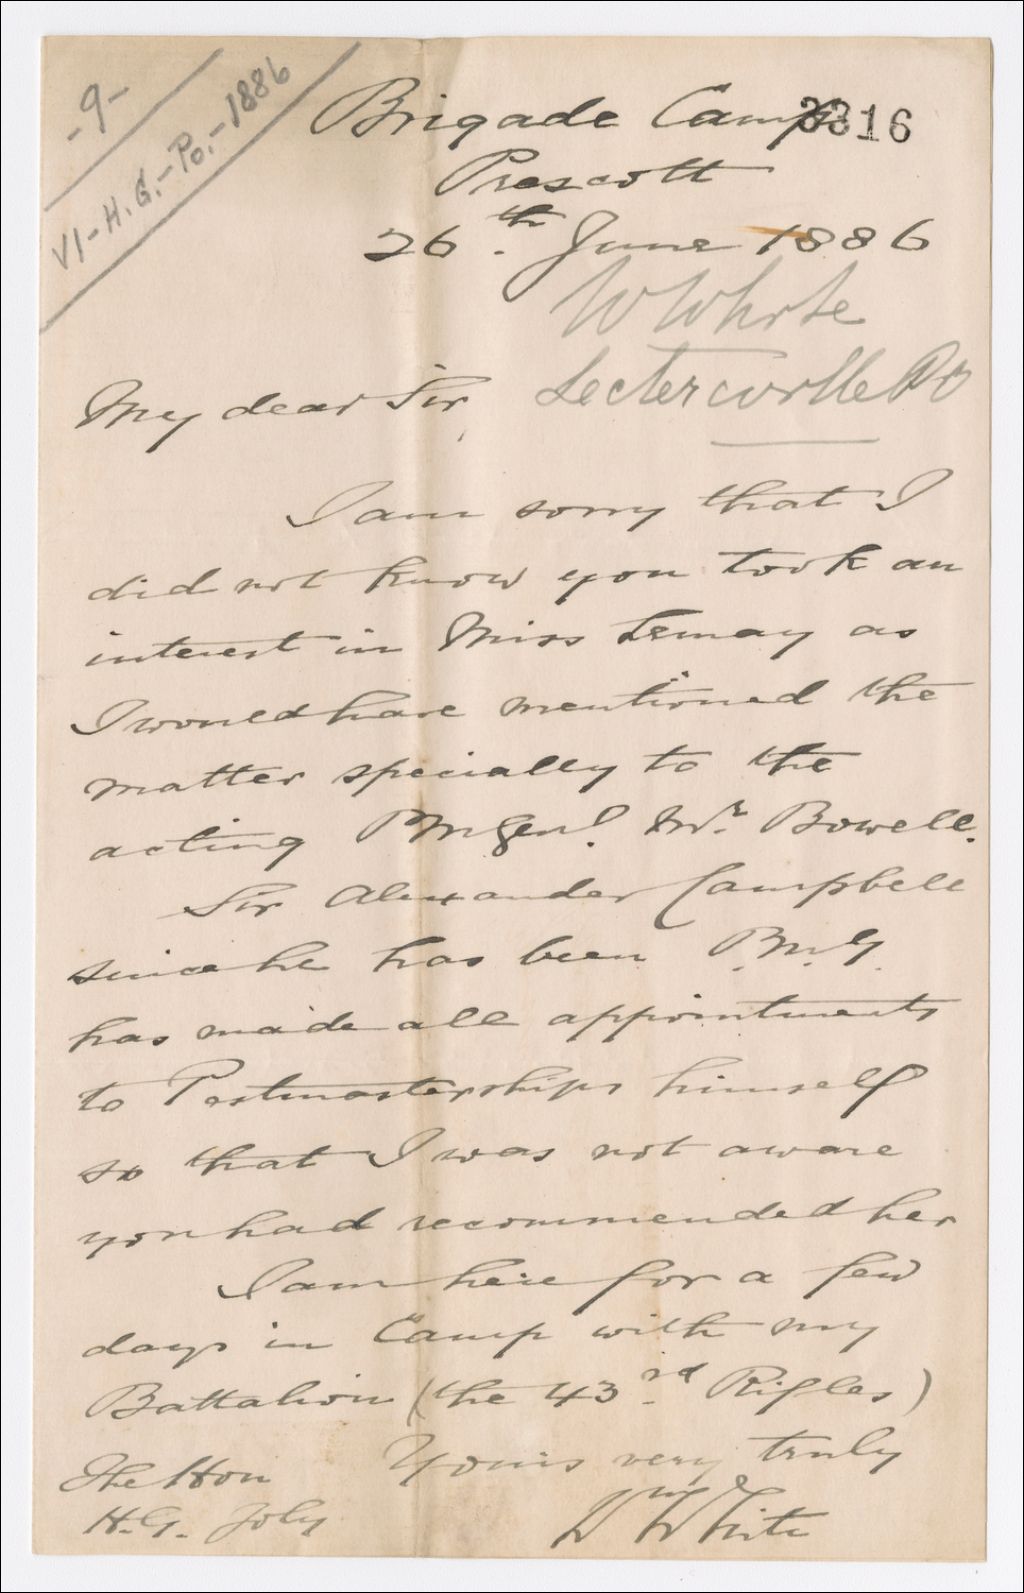 -9-
VI-H.G.-Po.-1886
Brigade Camp
3316
Prescott
26.th June 1886
W White
Lecterworth PO
My dear Sir,
I am sorry that I
did not know you took an
interest in Miss Lemay as
I would have mentioned the
matter specially to the
acting PMGenl. Mr. Bowell.
Sir Alexander Campbell
since he has been P.M.G.
has made all appointments
to Postmasterships himself
so that I was not aware
you had recommended her
I am here for a few
days in Camp with my
Battalion (the 43.rd Rifles)
Yours very truly
Wm White
The Hon
H.G. Joly